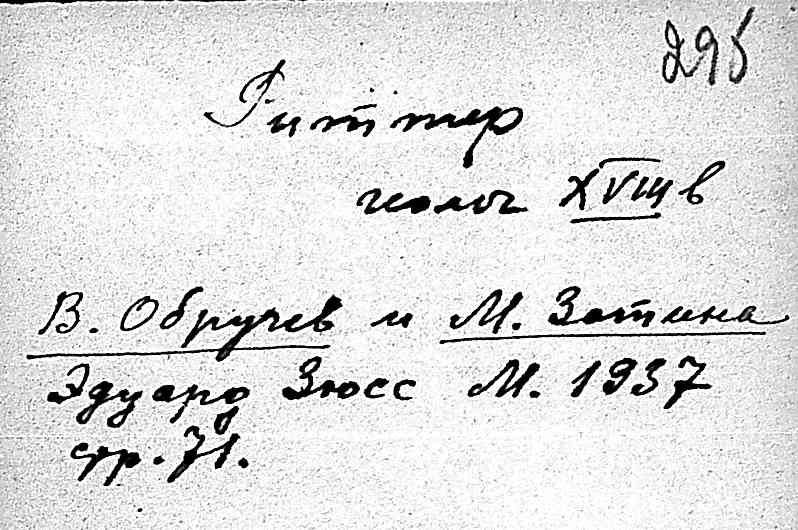 295
Риттер
геолог XVIII в
В. Обручев и М. Зотина
Эдуард Зюсс М. 1937
стр. 71.